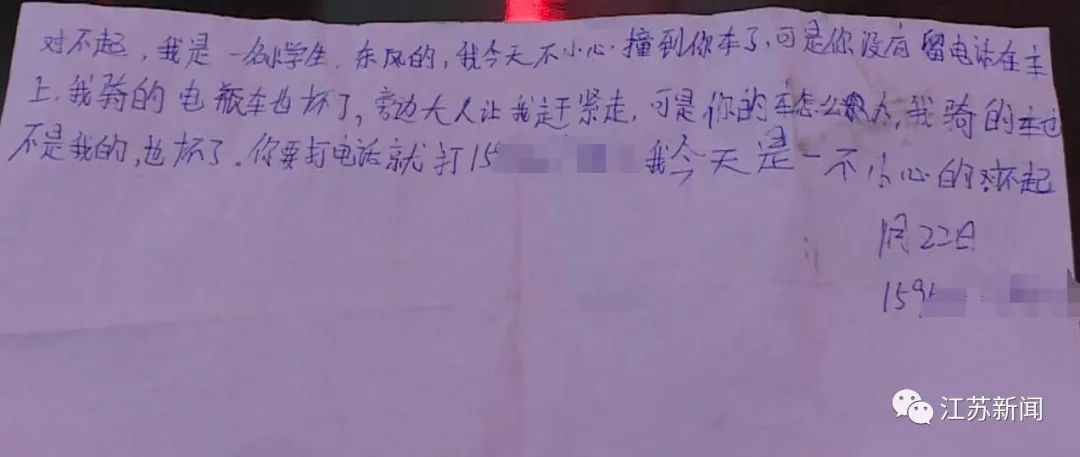 对不起，我是一名小学生，东风的，我今天不小心撞到你车了，可是你没有留电话在车
上，我骑的电瓶车也坏了，旁边大人让我赶紧走，可是你的车怎么办，我骑的车也
不是我的，也坏了。你要打电话就打15 我今天是一不小心的对不起
1月22日
159
江苏新闻